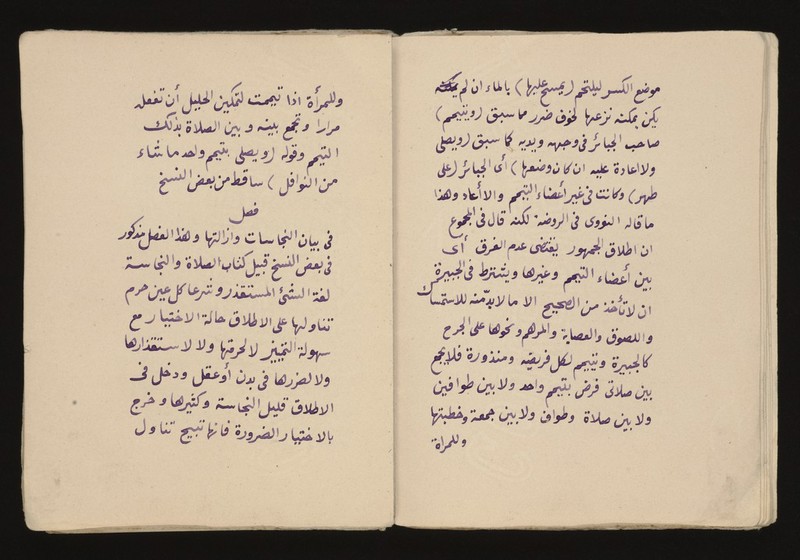 موضع الكسر ليلتحم (يمسح عليها) بالماء ان لم
يكن يمكنه نزعها لخوف ضرر مما سبق (ويتيمم)
صاحب الجبائر فى وجهه ويديه كما سبق (ويصلى
ولا اعادة عليه ان كان وضعها) أى الجبائر (على
طهر) وكانت فى غير أعضاء التيمم والا أعاد وهذا
ما قاله النووى فى الروضة لكنه قال فى المجموع
ان اطلاق الجمهور يقتضى عدم الفرق أى
بين أعضاء التيمم وغيرها ويشترط فى الجبيرة
ان لا تأخذ من الصحيح الا ما لا بد منه للاستمساك
واللصوق والعصابة والمرهم ونحوها على الجرح
كالجبيرة ويتيمم لكل فريضة ومنذورة فلا يجمع
بين صلاتى فرض بتيمم واحد ولا بين طوافين
ولا بين صلاة وطواف ولا بين جمعة وخطبتها
وللمرأة
وللمرأة اذا تيممت لتمكين الحليل أن تفعله
مرارا وتجمع بينه وبين الصلاة بذلك
التيمم وقوله (ويصلى بتيمم واحد ما شاء
من النوافل) ساقط من بعض النسخ
فصل
فى بيان النجاسات وازالتها وهذا الفصل مذكور
فى بعض النسخ قبيل كتاب الصلاة والنجاسة
لغة الشئ المستقذر وشرعا كل عين حرم
تناولها على الاطلاق حالة الاختيار مع
سهولة التمييز لا لحرمتها ولا لاستقذارها
ولا لضررها فى بدن أو عقل ودخل فى
الاطلاق قليل النجاسة وكثيرها وخرج
بالاختيار الضرورة فانها تبيح تناول